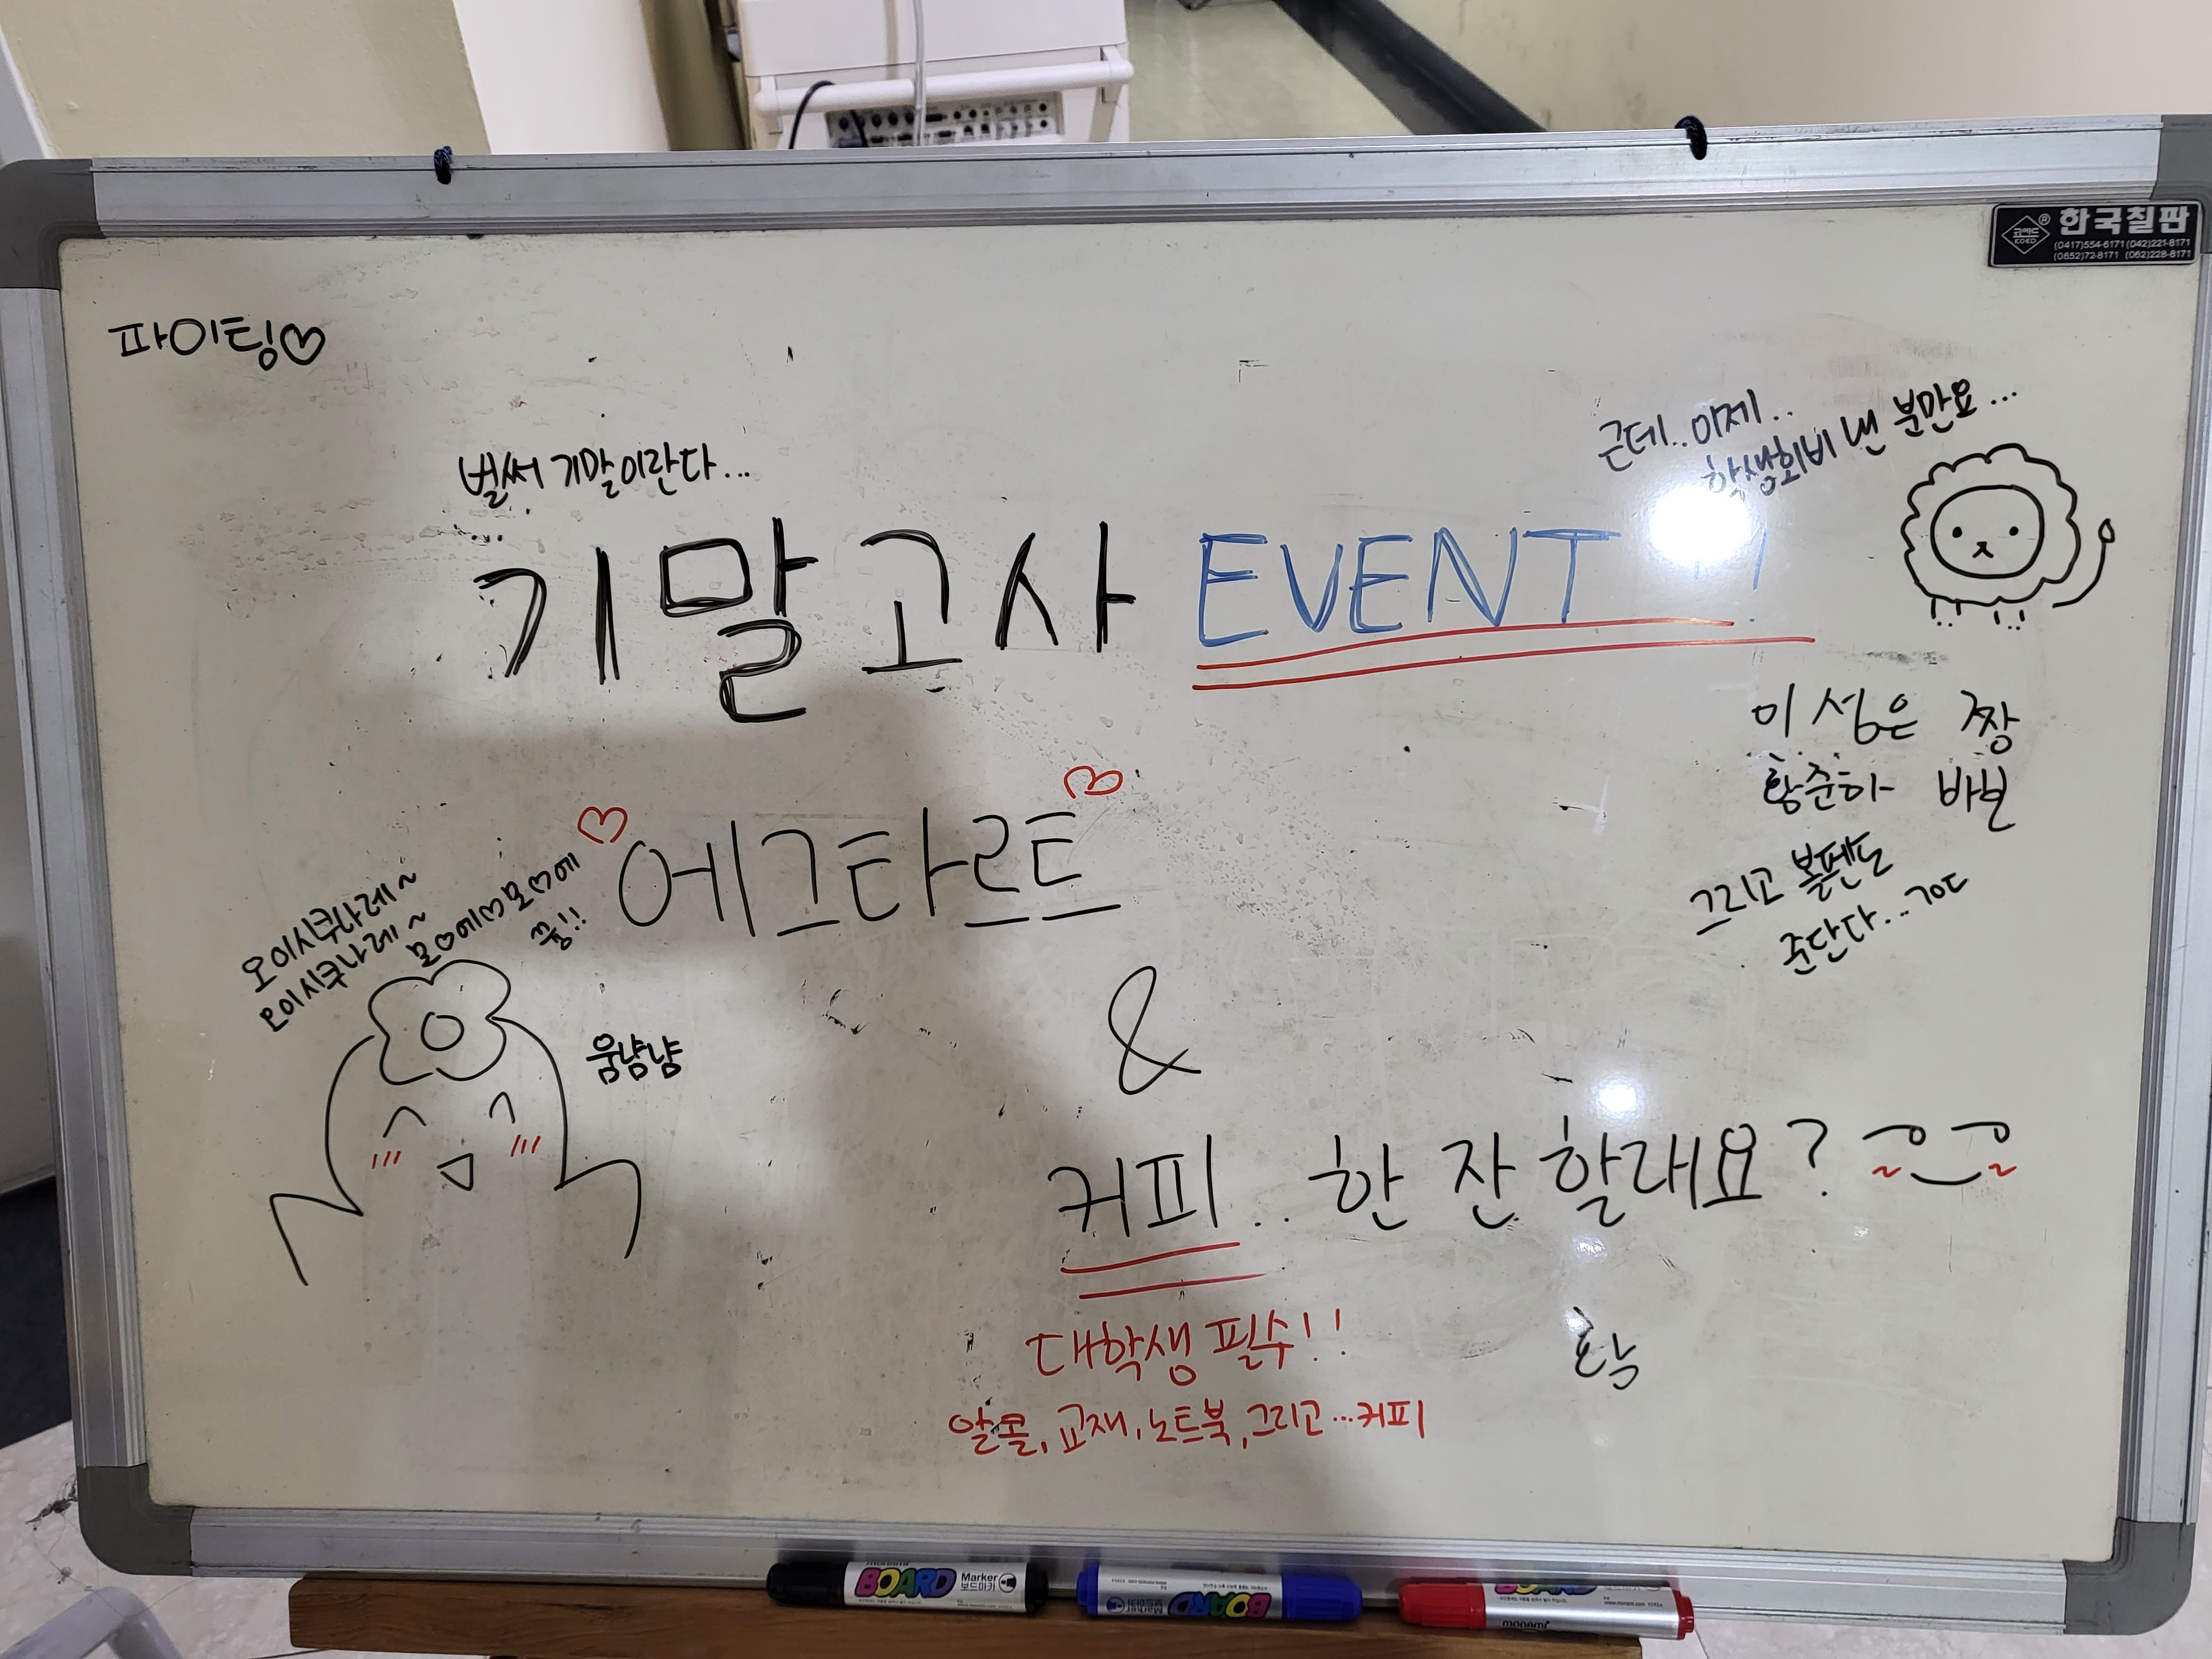 한국칠판
코에드
KOED
(0417)554-6171 (042)221-8171
(0652)72-8171 (062)228-8171
파이팅♡
벌써 기말이란다...
근데..이제..
학생회비 낸 분만요...
기말고사 EVENT !
이성은 짱
황준하 바보
그리고 볼펜도
준단다...
♡에그타르트♡
오이시쿠나레~
오이시쿠나레~
모에모에
뀽!!
움냠냠
&
커피.. 한 잔 할래요?
대학생 필수!!
알콜, 교재, 노트북, 그리고...커피
monami BOARD Marker 보드마카
BOARD Marker 보드마카
BOARD
monami